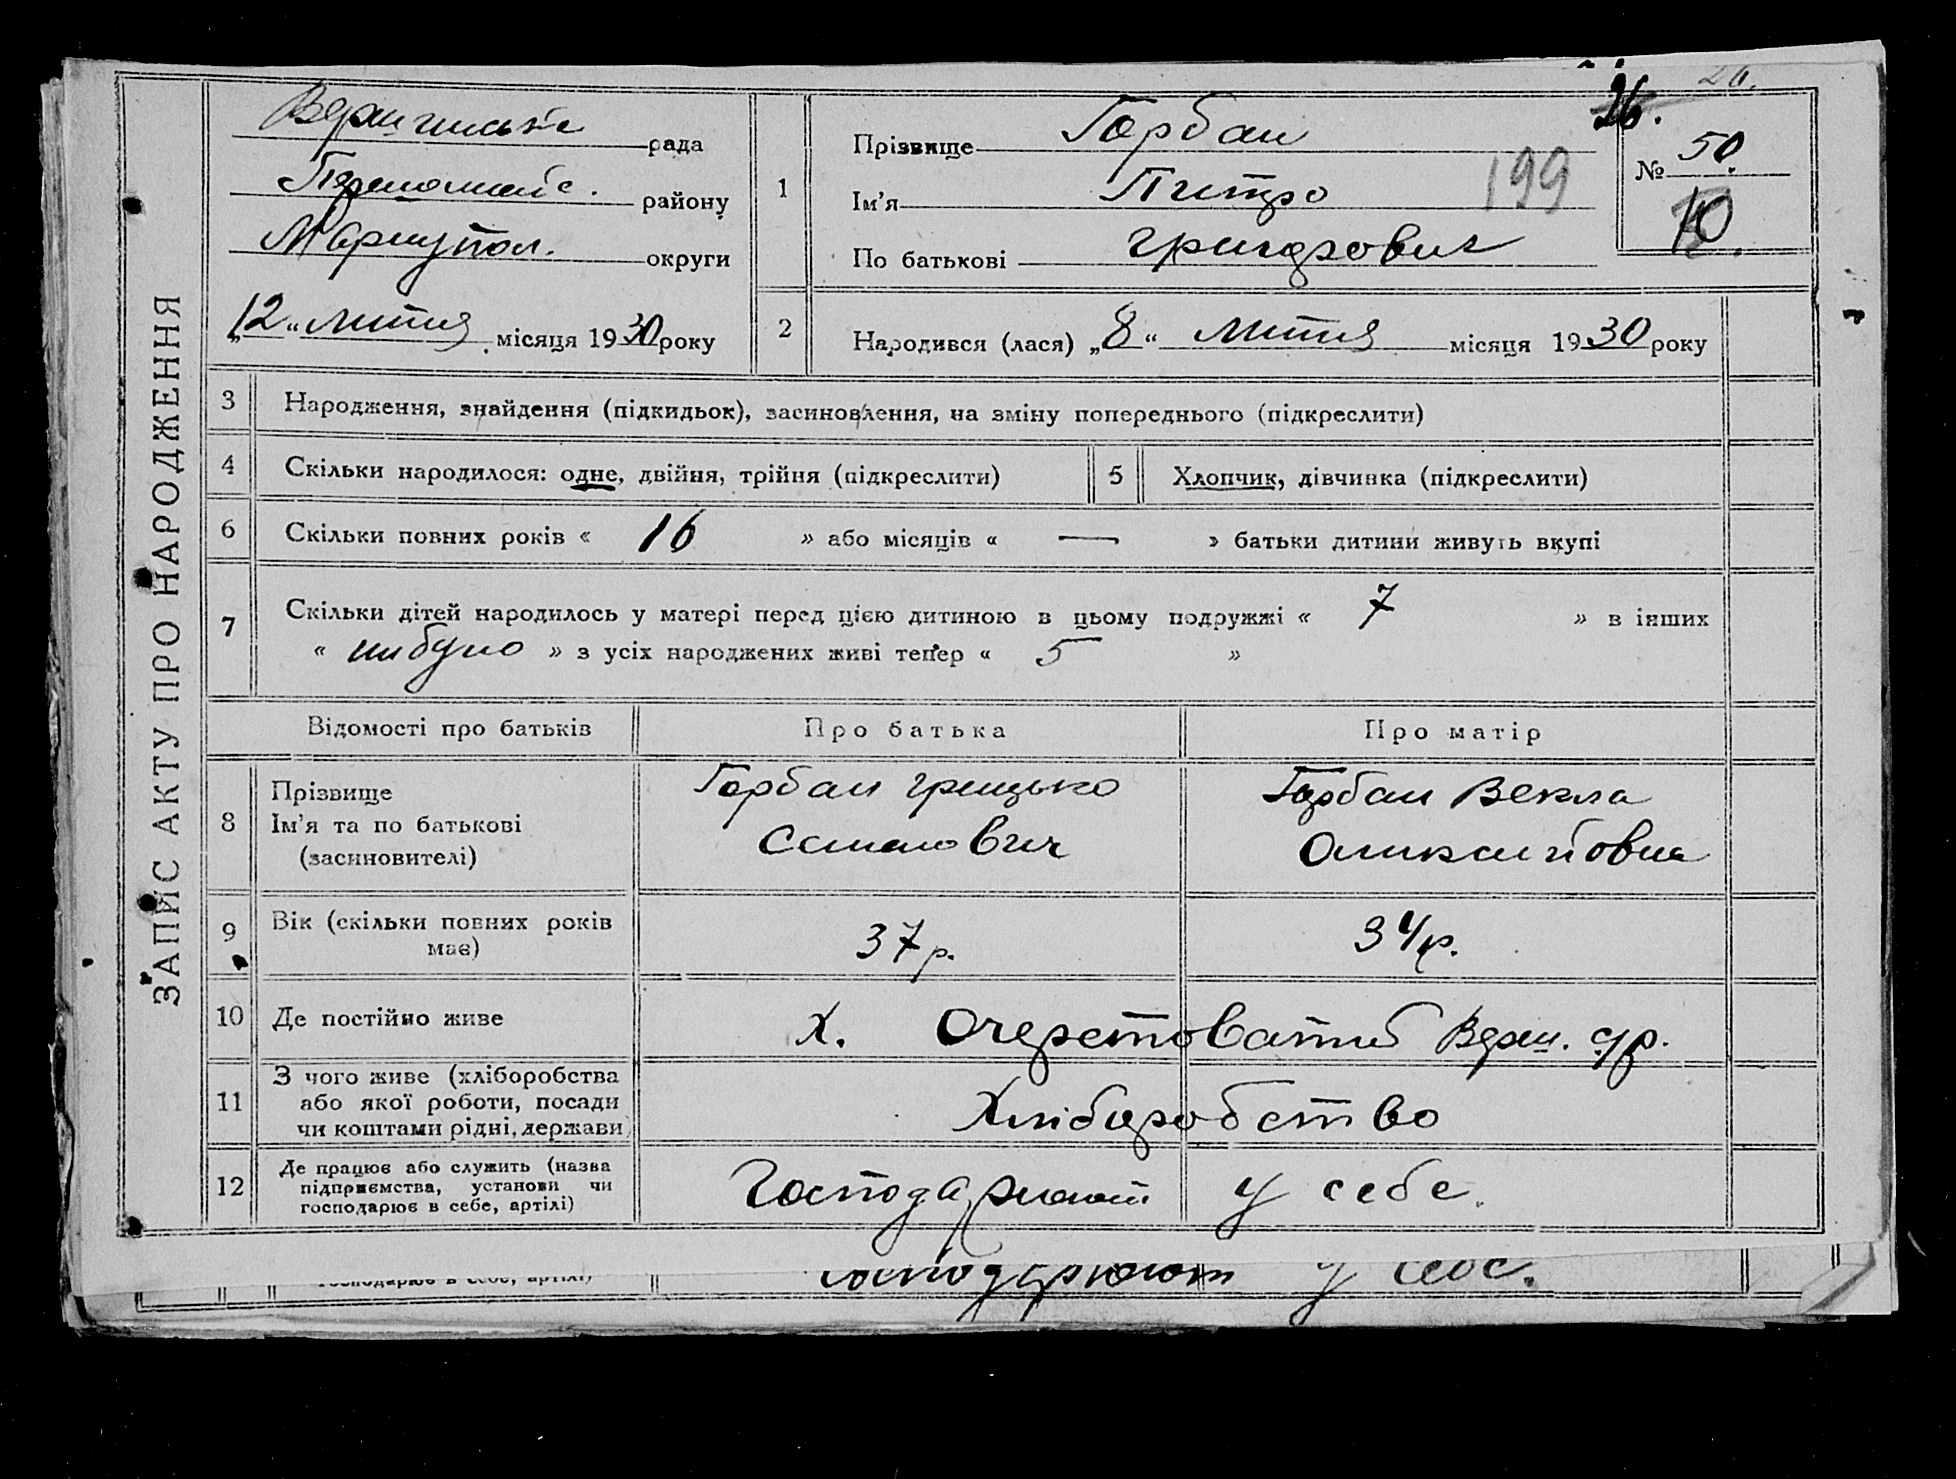 ЗАПИС АКТУ ПРО НАРОДЖЕННЯ
26.
26.
рада
району
Маріупол. округи
„12“ лютня місяця 1930 року
1
Прізвище Горбан
Ім'я Питро
По батькові Григорович
199
№ 50.
10
2
Народився (лася) „8“ лютня місяця 1930 року
3
Народження, знайдення (підкидьок), засиновлення, на зміну попереднього (підкреслити)
4
Скільки народилося: одне, двійня, трійня (підкреслити)
5
Хлопчик, дівчинка (підкреслити)
6
Скільки повних років « 16 » або місяців « — » батьки дитини живуть вкупі
7
Скільки дітей народилось у матері перед цією дитиною в цьому подружжі « 7 » в інших
« нибуло » з усіх народжених живі тепер « 5 »
Відомості про батьків
Про батька
Про матір
8
Прізвище
Ім'я та по батькові
(засиновителі)
Горбан Грицько
Горбан Векла
9
Вік (скільки повних років
має)
37 р.
34 р.
10
Де постійно живе
х. Очеретоватий Верш. с/р.
11
З чого живе (хліборобства
або якої роботи, посади
чи коштами рідні, держави
Хліборобство
12
Де працює або служить (назва
підприємства, установи чи
господарює в себе, артілі)
Господарюют у себе.
господарює в себе, артілі)
Господарюют у себе.